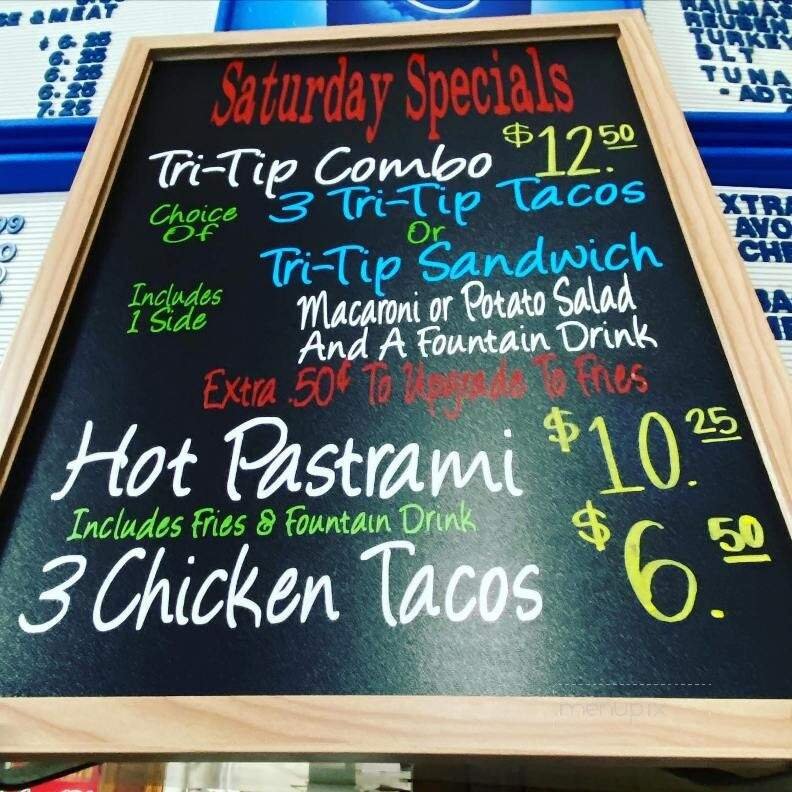 Saturday Specials
Tri-Tip Combo $12.50
Choice Of 3 Tri-Tip Tacos
Or
Tri-Tip Sandwich
Includes 1 Side
Macaroni or Potato Salad
And A Fountain Drink
Extra .50¢ To Upgrade To Fries
Hot Pastrami $10.25
Includes Fries & Fountain Drink
3 Chicken Tacos $6.50
& MEAT
6.25
6.25
6.25
7.25
REUBEN
TURKEY
BLT
TUNA
menupix